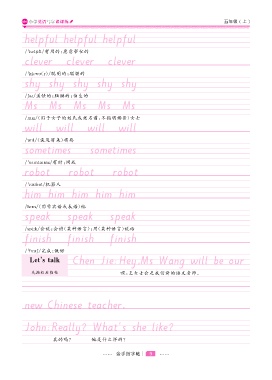 五年级(上)
helpful helpful helpful
/'helpfl/有用的;愿意帮忙的
clever clever clever
/'klevə(r)/聪明的;聪颖的
shy shy shy shy shy
/ʃaɪ/羞怯的;腼腆的;怕生的
Ms Ms Ms Ms Ms
will will will will
sometimes sometimes
/'sʌmtaɪmz/有时;间或
robot robot robot
/'rəʊbɒt/机器人
him him him him him
speak speak speak
/spiːk/会说;会讲(某种语言);用(某种语言)说话
finish finish finish
/'fɪnɪʃ/完成;做好
Let's talk
Chen Jie: Hey, Ms Wang will be our
嘿,王女士会是我们新的语文老师。
new Chinese teacher.
John: Really? What's she like?
真的吗? 她是什么样的?